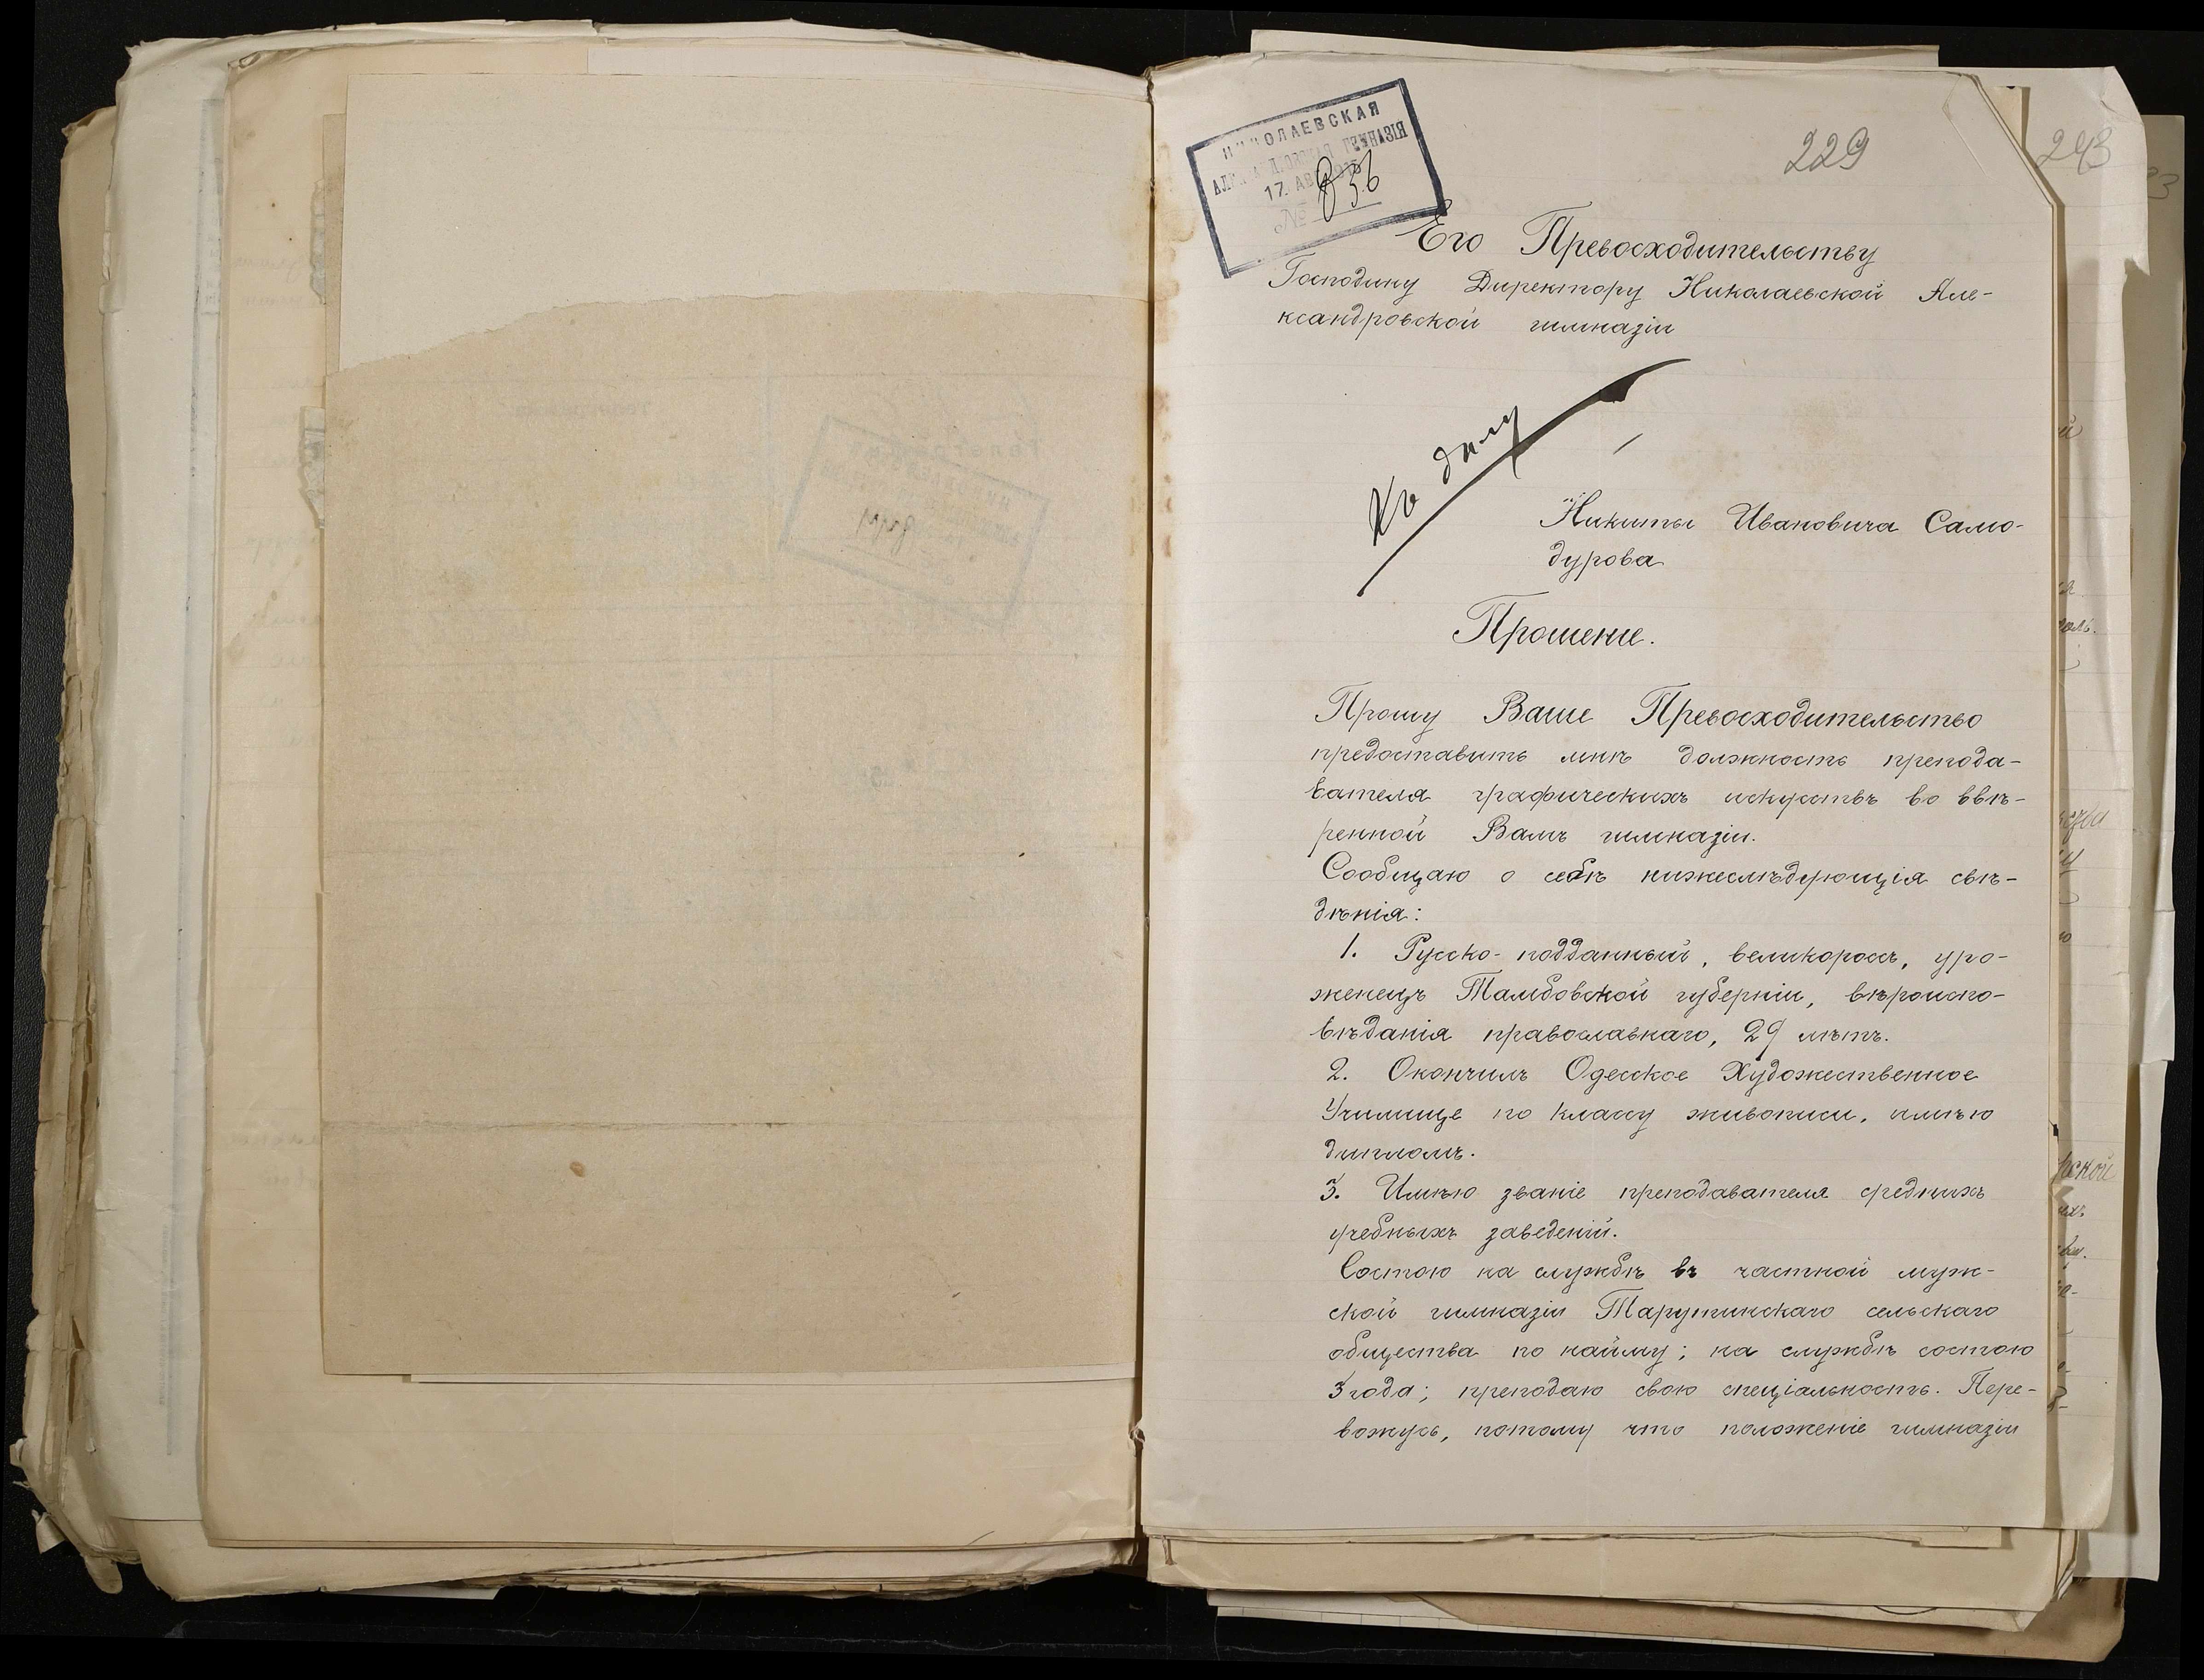 НИКОЛАЕВСКАЯ
ГИМНАЗІЯ
17. АВГ
№ 836
229
243
Его Превосходительству
Господину Директору Николаевской Але-
ксандровской гимназіи
Къ дѣлу
Никиты Ивановича Само-
дурова
Прошеніе.
Прошу Ваше Превосходительство
предоставить мнѣ должность препода-
вателя графическихъ искусствъ во ввѣ-
ренной Вамъ гимназіи.
Сообщаю о себѣ нижеслѣдующія свѣ-
дѣнія:
1. Русско-подданный, великороссъ, уро-
женецъ Тамбовской губерніи, вѣроиспо-
вѣданія православнаго, 29 лѣтъ.
2. Окончилъ Одесское Художественное
Училище по классу живописи, имѣю
дипломъ.
3. Имѣю званіе преподавателя среднихъ
учебныхъ заведеній.
Состою на службѣ въ частной муж-
ской гимназіи Тарутинскаго сельскаго
общества по найму; на службѣ состою
3 года; преподаю свою спеціальность. Пере-
вожусь, потому что положеніе гимназіи